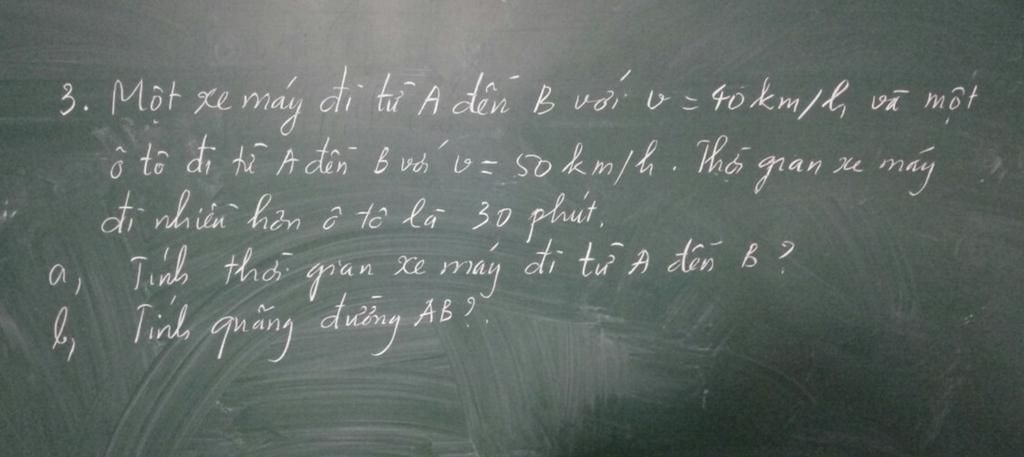 3. Một xe máy đi từ A đến B với v = 40 km/h, và một
ô tô đi từ A đến B với v = 50 km/h. Thời gian xe máy
đi nhiều hơn ô tô là 30 phút.
a, Tính thời gian xe máy đi từ A đến B?
b, Tính quãng đường AB?.